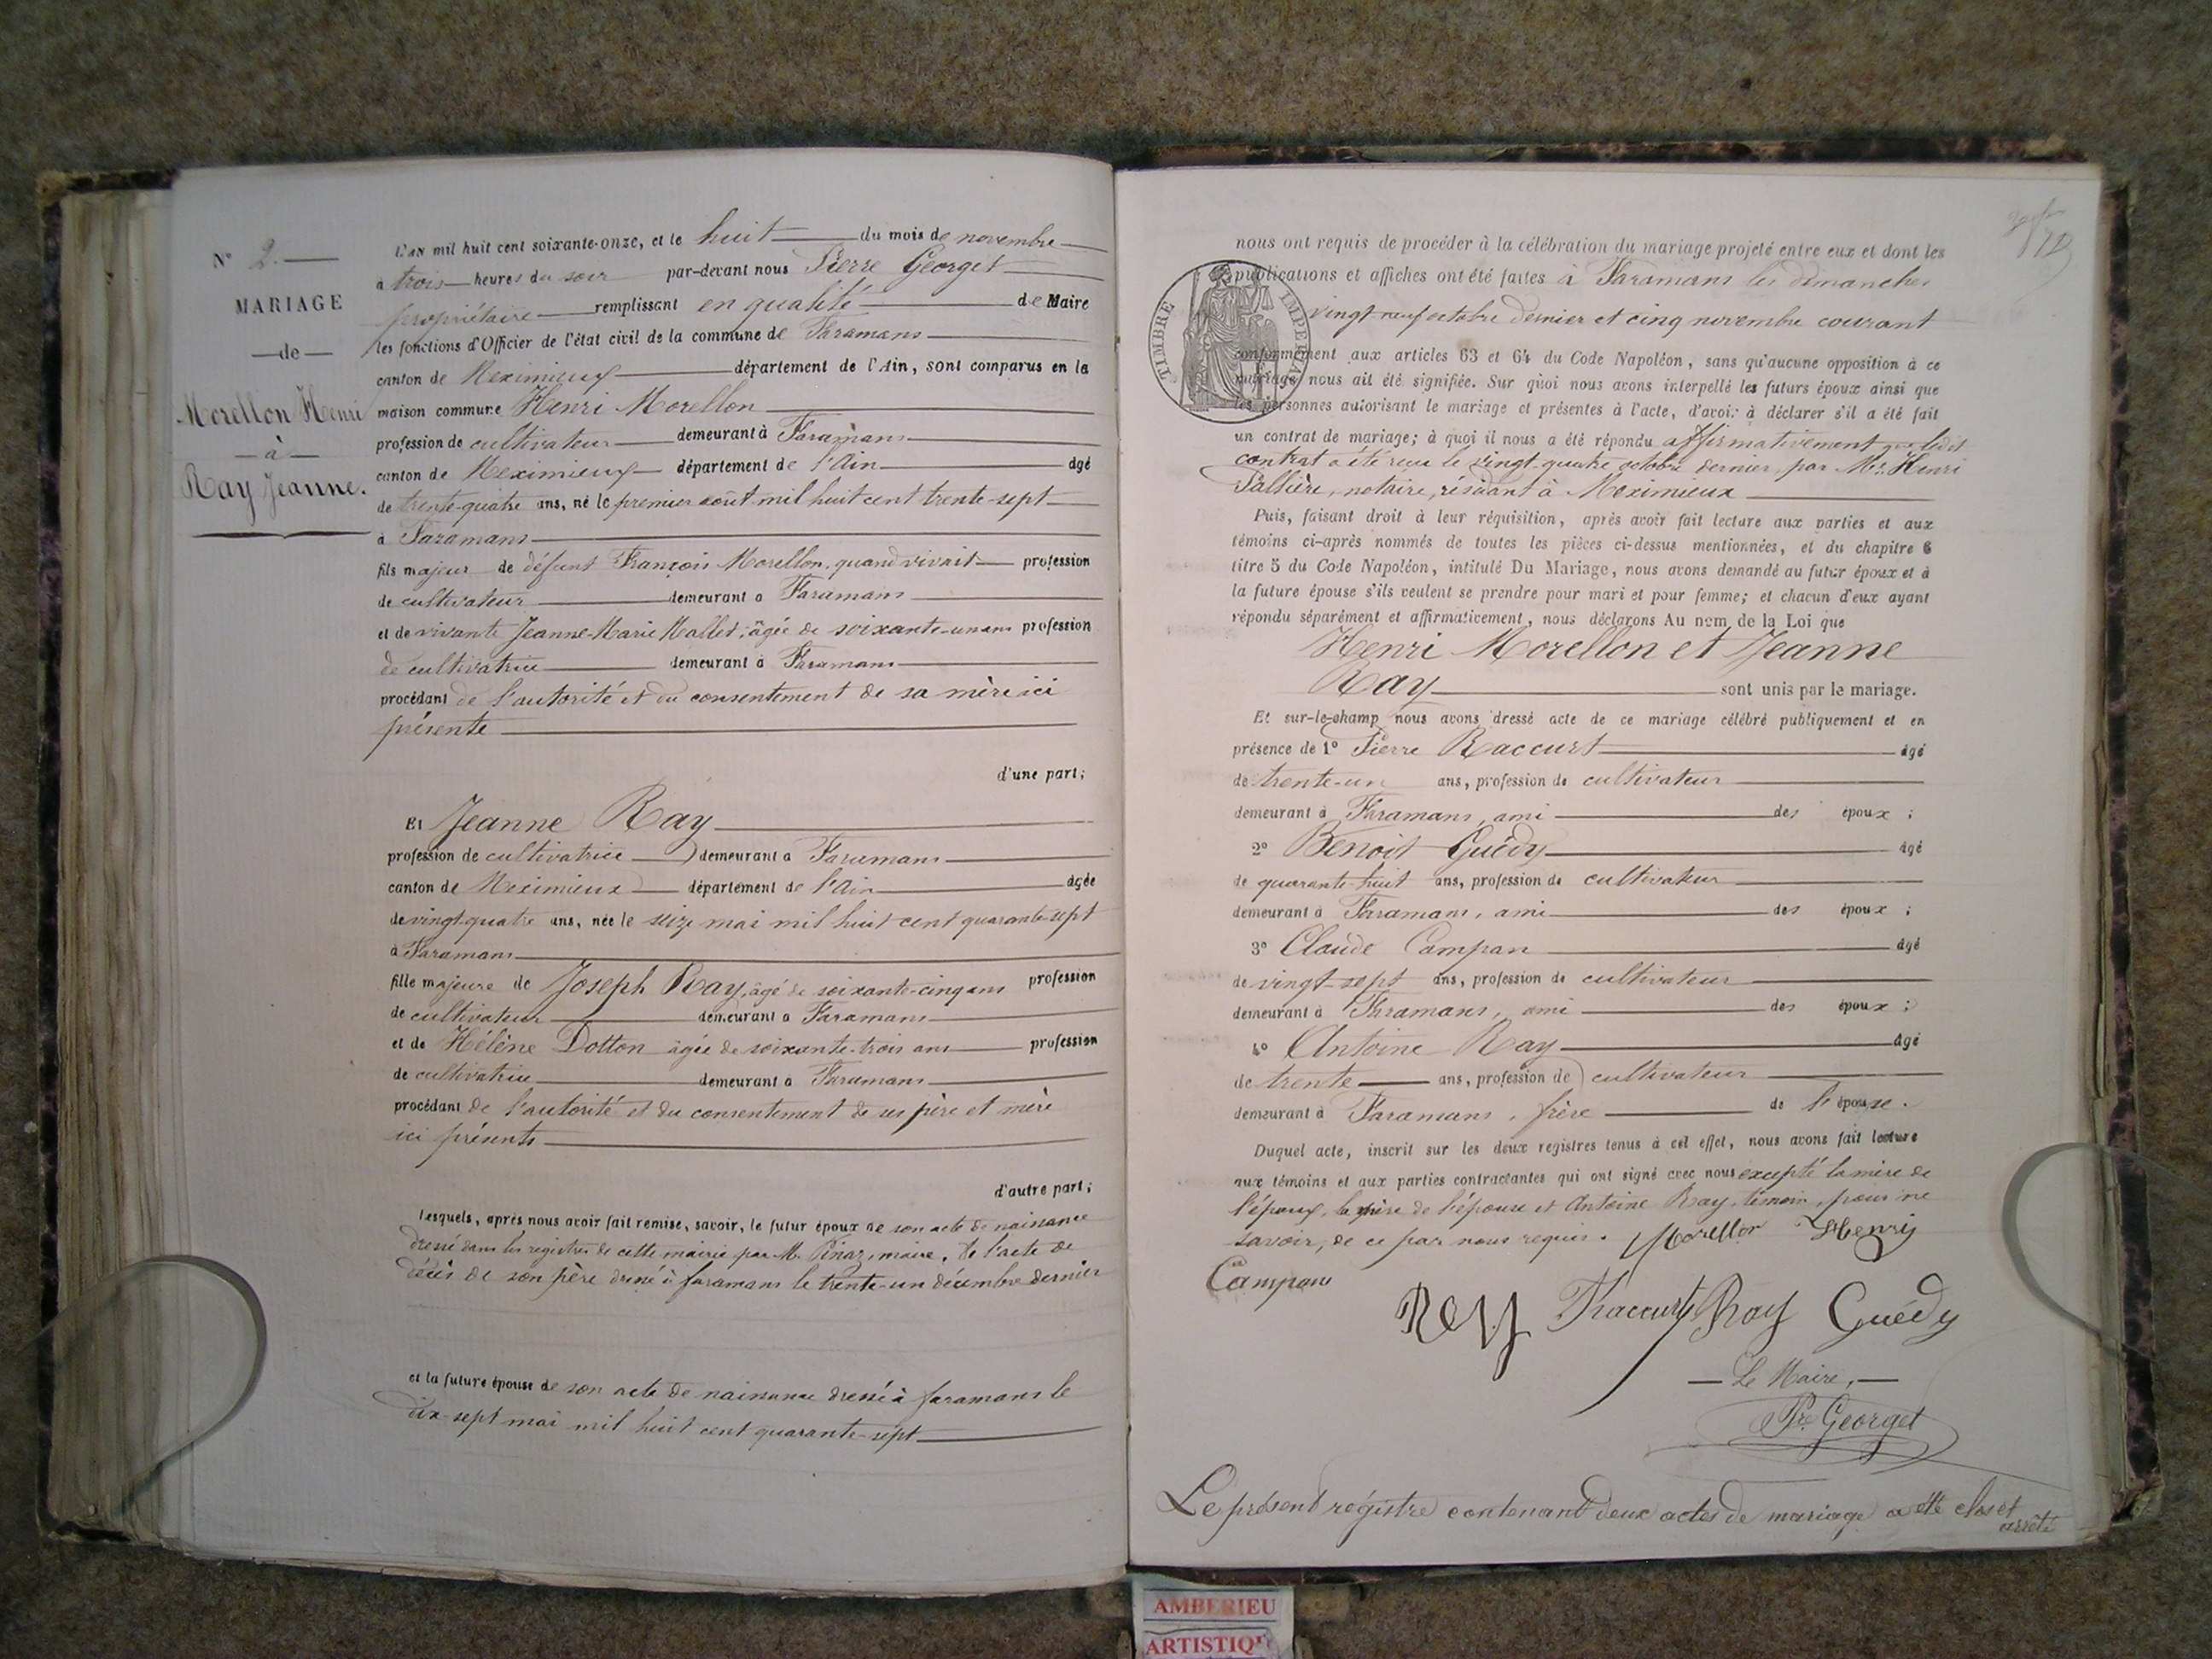 N° 2.
MARIAGE
de
Morellon Henri
à
Ray Jeanne.
L'an mil huit cent soixante-onze, et le huit du mois de novembre
à trois heures du soir par-devant nous Pierre Georget
propriétaire remplissant en qualité de Maire
les fonctions d'Officier de l'état civil de la commune de Faramans
canton de Meximieux département de l'Ain, sont comparus en la
maison commune Henri Morellon
profession de cultivateur demeurant à Faramans
canton de Meximieux département de l'Ain âgé
de trente-quatre ans, né le premier août mil huit cent trente-sept
à Faramans
fils majeur de défunt François Morellon, quand vivait profession
de cultivateur demeurant à Faramans
et de vivante Jeanne-Marie Mallet, âgée de soixante-un ans profession
de cultivatrice demeurant à Faramans
procédant de l'autorité et du consentement de sa mère ici
présente
d'une part;
Et Jeanne Ray
profession de cultivatrice demeurant à Faramans
canton de Meximieux département de l'Ain âgée
de vingt-quatre ans, née le seize mai mil huit cent quarante-sept
à Faramans
fille majeure de Joseph Ray, âgé de soixante-cinq ans profession
de cultivateur demeurant à Faramans
et de Hélène Dotton âgée de soixante-trois ans profession
de cultivatrice demeurant à Faramans
procédant de l'autorité et du consentement de ses père et mère
ici présents
d'autre part;
Lesquels, après nous avoir fait remise, savoir, le futur époux de son acte de naissance
dressé dans les registres de cette mairie par M. Pinaz, maire, de l'acte de
décès de son père dressé à faramans le trente-un décembre dernier
et la future épouse de son acte de naissance dressé à faramans le
dix-sept mai mil huit cent quarante-sept
nous ont requis de procéder à la célébration du mariage projeté entre eux et dont les
publications et affiches ont été faites à Faramans les dimanches
TIMBRE IMPERIAL
vingt-neuf octobre dernier et cinq novembre courant
conformément aux articles 63 et 64 du Code Napoléon, sans qu'aucune opposition à ce
mariage nous ait été signifiée. Sur quoi nous avons interpellé les futurs époux ainsi que
les personnes autorisant le mariage et présentes à l'acte, d'avoir à déclarer s'il a été fait
un contrat de mariage; à quoi il nous a été répondu affirmativement que ledit
contrat a été reçu le vingt-quatre octobre dernier, par Mr. Henri
Sallière, notaire, résidant à Meximieux
Puis, faisant droit à leur réquisition, après avoir fait lecture aux parties et aux
témoins ci-après nommés de toutes les pièces ci-dessus mentionnées, et du chapitre 6
titre 5 du Code Napoléon, intitulé Du Mariage, nous avons demandé au futur époux et à
la future épouse s'ils veulent se prendre pour mari et pour femme; et chacun d'eux ayant
répondu séparément et affirmativement, nous déclarons Au nom de la Loi que
Henri Morellon et Jeanne
Ray sont unis par le mariage.
Et sur-le-champ nous avons dressé acte de ce mariage célébré publiquement et en
présence de 1° Pierre Raccurt âgé
de trente-un ans, profession de cultivateur
demeurant à Faramans, ami des époux ;
2° Benoit Guédy âgé
de quarante-huit ans, profession de cultivateur
demeurant à Faramans, ami des époux ;
3° Claude Campan âgé
de vingt-sept ans, profession de cultivateur
demeurant à Faramans, ami des époux ;
4° Antoine Ray âgé
de trente ans, profession de cultivateur
demeurant à Faramans, frère de l'épouse.
Duquel acte, inscrit sur les deux registres tenus à cet effet, nous avons fait lecture
aux témoins et aux parties contractantes qui ont signé avec nous excepté la mère de
l'époux, la mère de l'épouse et Antoine Ray, témoin, pour ne
savoir, de ce par nous requis. Morellon Henri
Campan
Rey Raccurt Ray Guédy
Le Maire,
Pre Georget
Le présent régistre contenant deux actes de mariage a été clos et
arrêté
AMBERIEU
ARTISTIQU